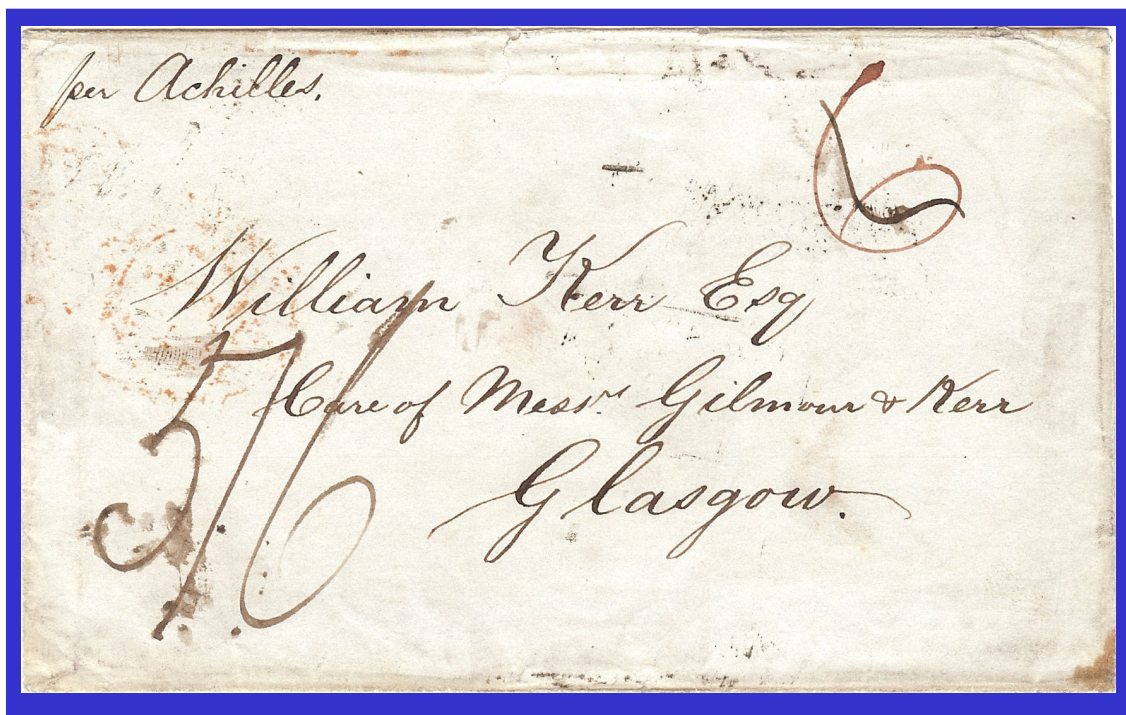 per Achilles.
6
William Kerr Esq
Care of Messrs. Gilmour & Kerr
Glasgow.